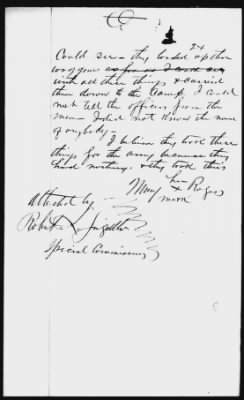 24
Could see - they loaded up two
with all these things & carried
them down to the Camp. I could
not tell the officers from the
men I did not know the name
of anybody -
I believe they took these
things for the army because they
had nothing. & they took this
her
Mary + Rogers
mark
Attested by
Robert
Special Commissioner